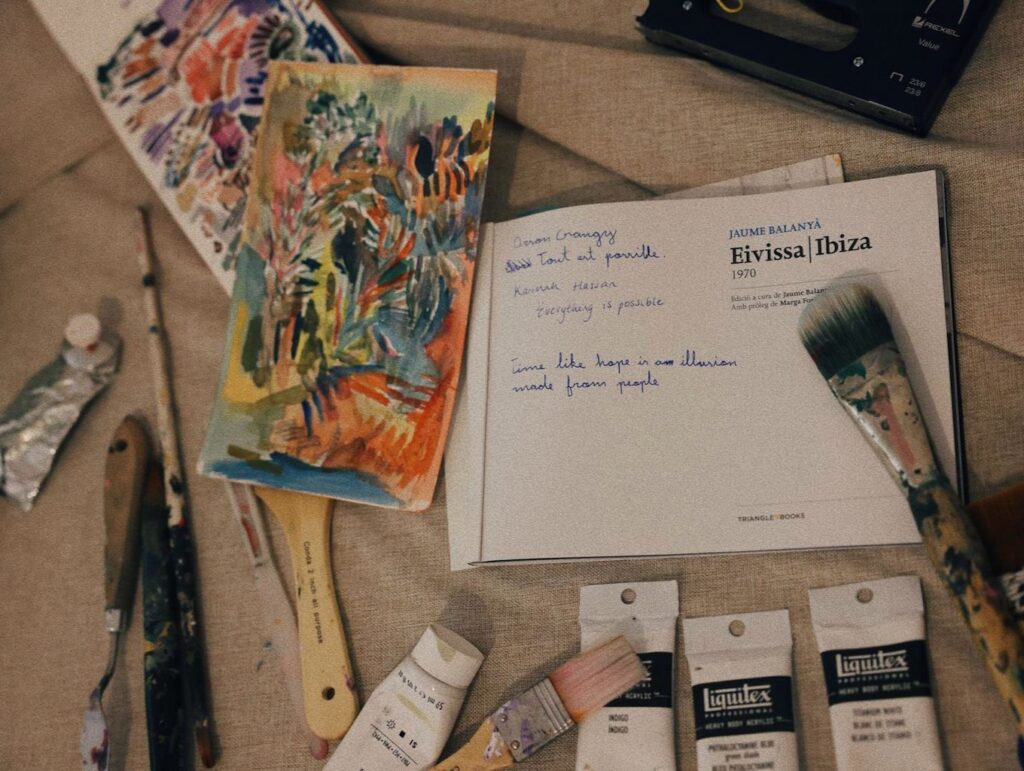 REXEL
Value
23/6
23/8
Tout est possible.
Hassan
Everything is possible
Time like hope is an illusion
made from people
JAUME BALANYÀ
Eivissa|Ibiza
1970
Edició a cura de Jaume
Amb pròleg de Marga
TRIANGLE BOOKS
Conda 2 inch all purpose
ACRYLIC
INDIGO
INDIGO
Liquitex
PROFESSIONAL
HEAVY BODY ACRYLIC
PHTHALOCYANINE BLUE
green shade
BLEU PHTALOCYANINE
Liquitex
PROFESSIONAL
HEAVY BODY ACRYLIC
TITANIUM WHITE
BLANC DE TITANE
BLANCO DE TITANIO